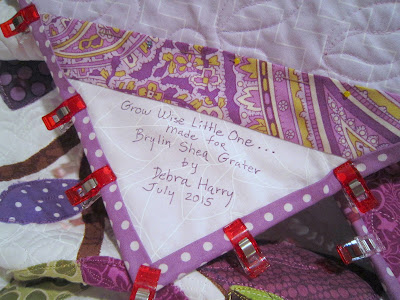 Grow Wise Little One...
made for
Brylin Shea Grater
by
Debra Harry
July 2015